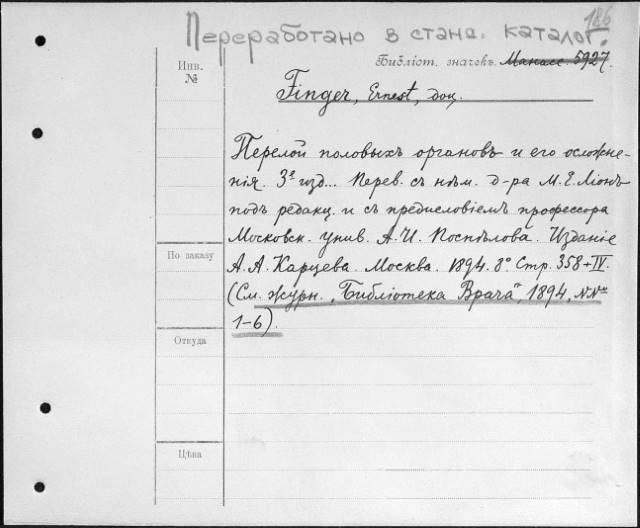 186
Переработано в станд. каталог.
Инв.
№
Библіот. значекъ. Манасс. 5927.
Finger, Ernest, доц.
Перелой половыхъ органовъ и его осложне-
нія. 3е изд... Перев. съ нѣм. д-ра М. Е. Ліонъ
подъ редакц. и съ предисловіемъ профессора
Московск. унив. А. И. Поспѣлова. Изданіе
По заказу
А. А. Карцева. Москва. 1894. 8° Стр. 358+IV.
(См. журн. „Библіотека Врача", 1894, №№
1-6).
Откуда
Цѣна